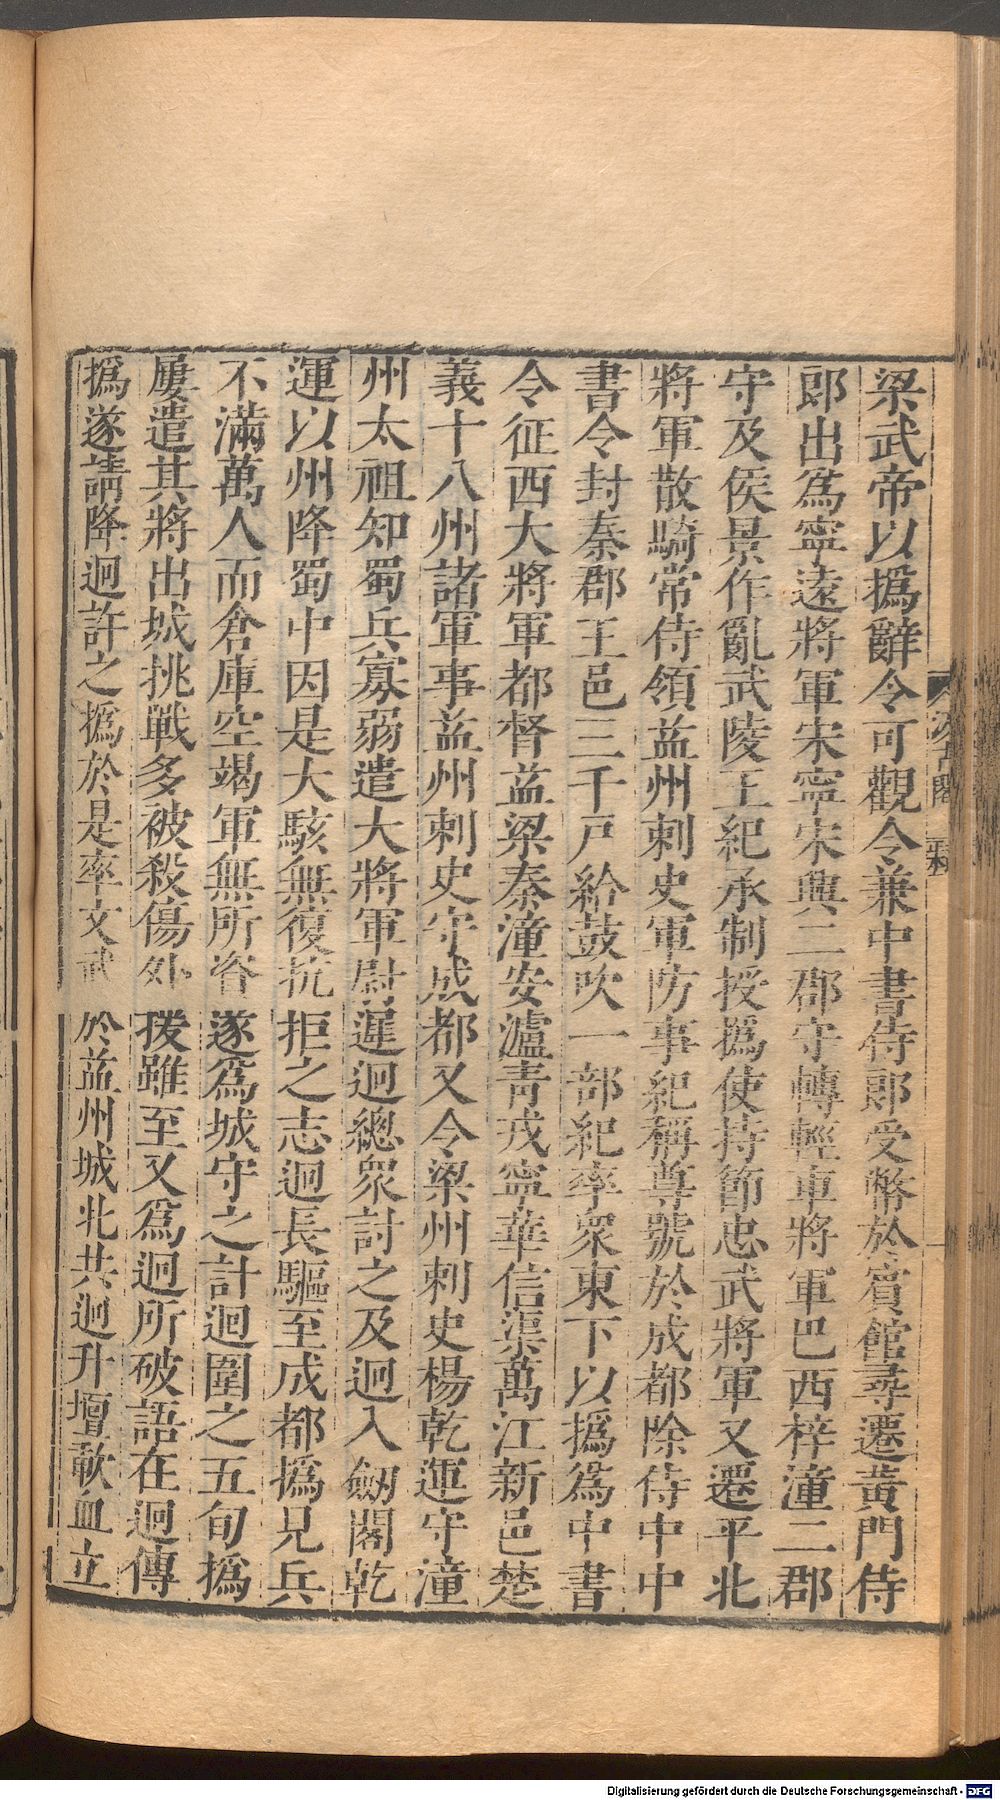 梁武帝以撝辭令可觀令兼中書侍郎受幣於賓館尋遷黃門侍
郎出爲寧遠將軍宋寧宋興二郡守轉輕車將軍巴西梓潼二郡
守及侯景作亂武陵王紀承制授撝使持節忠武將軍又遷平北
將軍散騎常侍領益州刺史軍防事紀稱尊號於成都除侍中中
書令封秦郡王邑三千戸給鼓吹一部紀率衆東下以撝爲中書
令征西大將軍都督益梁秦潼安瀘青戎寧華信渠萬江新邑楚
義十八州諸軍事益州刺史守成都又令梁州刺史楊乾運守潼
州太祖知蜀兵寡弱遣大將軍尉遲迥總衆討之及迥入劒閣乾
運以州降蜀中因是大駭無復抗拒之志迥長驅至成都撝見兵
不滿萬人而倉庫空竭軍無所資遂爲城守之計迥圍之五旬撝
屢遣其將出城挑戰多被殺傷外援雖至又爲迥所破語在迥傳
撝遂請降迥許之撝於是率文武於益州城北共迥升壇歃血立
汲古閣
Digitalisierung gefördert durch die Deutsche Forschungsgemeinschaft - DFG